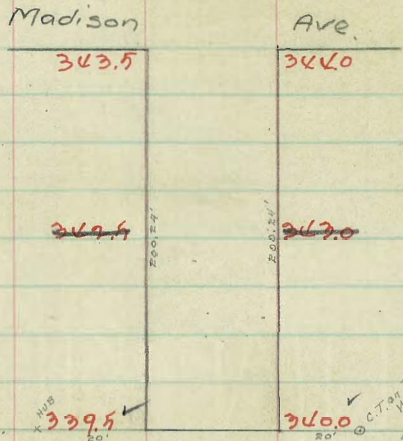 Madison Ave.
343.5 344.0
200.24' 200.24'
343.0
HUB
339.5 340.0
20' 20'
C.T. on